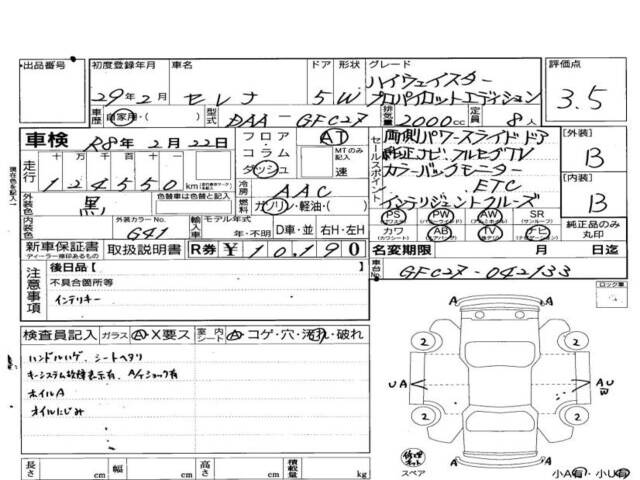 出品番号 初度登録年月 車名 ドア 形状 グレード 評価点
29年2月 セレナ 5W ハイウェイスター
プロパイロットエディション 3.5
車歴 自家用・( ) 型式 DAA-GFC27 排気量 2000cc 定員 8人
車検 R8年2月22日 フロア AT セールスポイント 両側パワースライドドア 【外装】
走行 十 万 千 百 十 一 コラム MTのみ記入 純正ナビ・フルセグTV B
124550km ダッシュ 速 カラーバックモニター
冷房 AAC ETC 【内装】
外装色 黒 色替車は色替と記入 燃料 ガソリン・軽油・( ) インテリジェントクルーズ B
内装色 外装カラーNo. G41 輸入車 モデル年式 年・不明 D車・並 右H・左H PS PW AW SR
(パワステ) (パワーウインドウ) (アルミホイル) (サンルーフ)
カワ AB TV ナビ 純正品のみ丸印
(カワシート) (エアバッグ)
新車保証書 取扱説明書 R券 ¥10,190 名変期限 月 日迄
ディーラー捺印あるもの
注意事項 後日品【 】 車台No. GFC27-042133
不具合箇所等 ロック車
インテリキー
検査員記入 ガラス A・X要ス 室内シート A・コゲ・穴・汚れ・破れ
ハンドルハゲ、シートヘタリ
キーシステム故障表示有、A/Tショック有
ホイルA
オイルにじみ
A A
2 2
UA AU
W
2 2
A A
スペア
小A有・小U有
長さ cm 幅 cm 高さ cm 積載量 kg